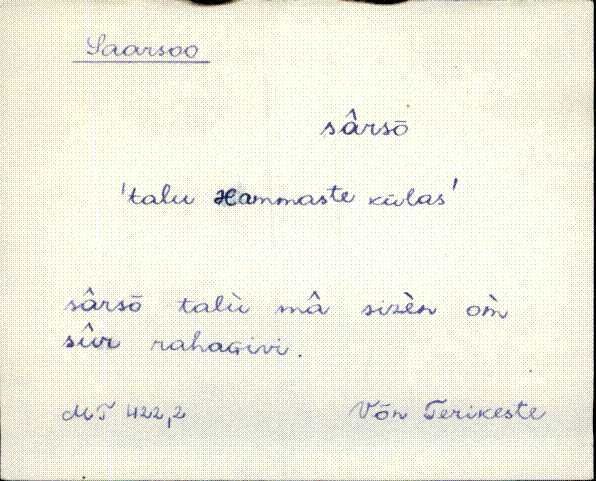 Saarsoo
sârsō
'talu Hammaste külas'
sârsō talù mâ sizèn om̀
sûr rahaɢivi.
MT 422,2 Võn Terikeste